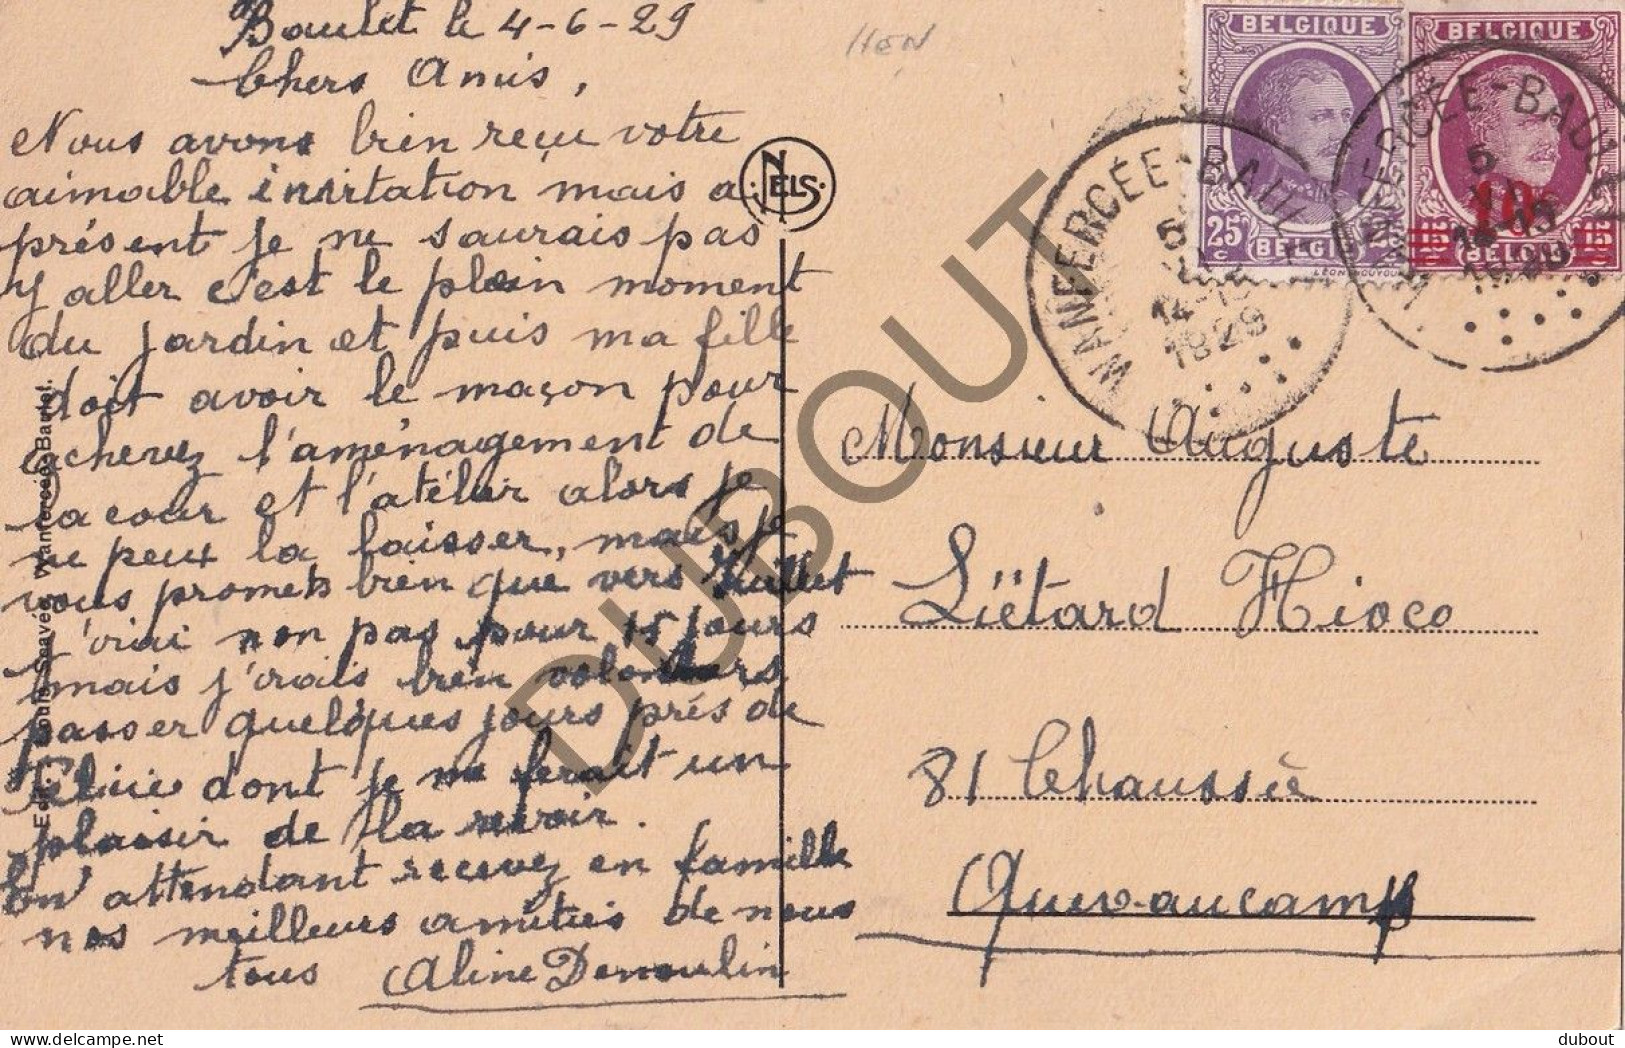 Baulet le 4-6-29
Chers Amis,
Nous avons bien reçu votre
aimable invitation mais a
présent je ne saurais pas
y aller c'est le plein moment
du jardin et puis ma fille
doit avoir le maçon pour
achevez l'aménagement de
la cour et l'atélier alors je
ne peux la laisser, mais je
vous promets bien que vers Juillet
j'irai non pas pour 15 jours
mais j'irais bien volontiers
passer quelques jours près de
dont je me ferait un
plaisir de la revoir.
En attendant recevez en famille
nos meilleurs amitiés de nous
tous Aline Demoulin
HEN
NELS
Edit. Louis Seavée, Wanfercée-Baulet.
BELGIQUE
25 c
BELGIË
BELGIQUE
10c
15
BELGIË
WANFERCÉE-BAUL
5
1929
WANFERCÉE-BAUL
5
Monsieur Auguste
Liétard Hioco
81 Chaussée
Quevaucamps
DUBOUT